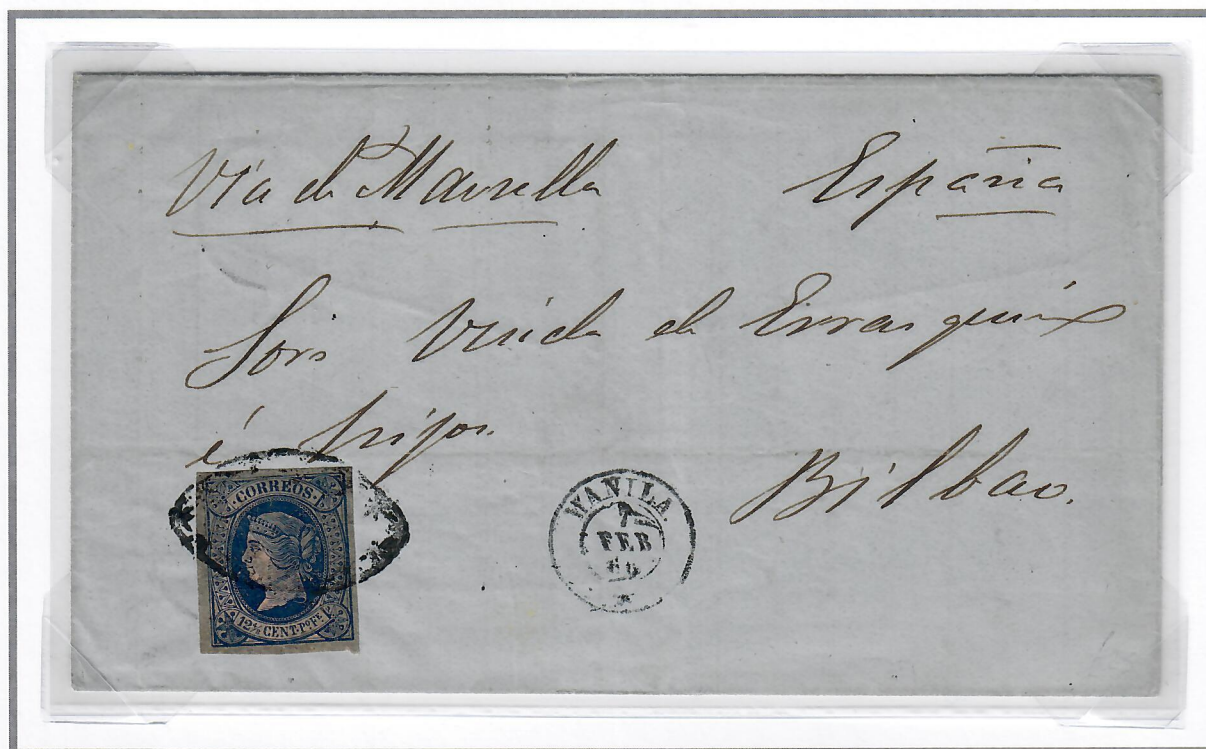 Via de Marsella España
Sors Viuda de Errasquin
é hijos.
Bilbao.
CORREOS
12 4/8 CENT. Pº FE
MANILA.
7
FEB
66